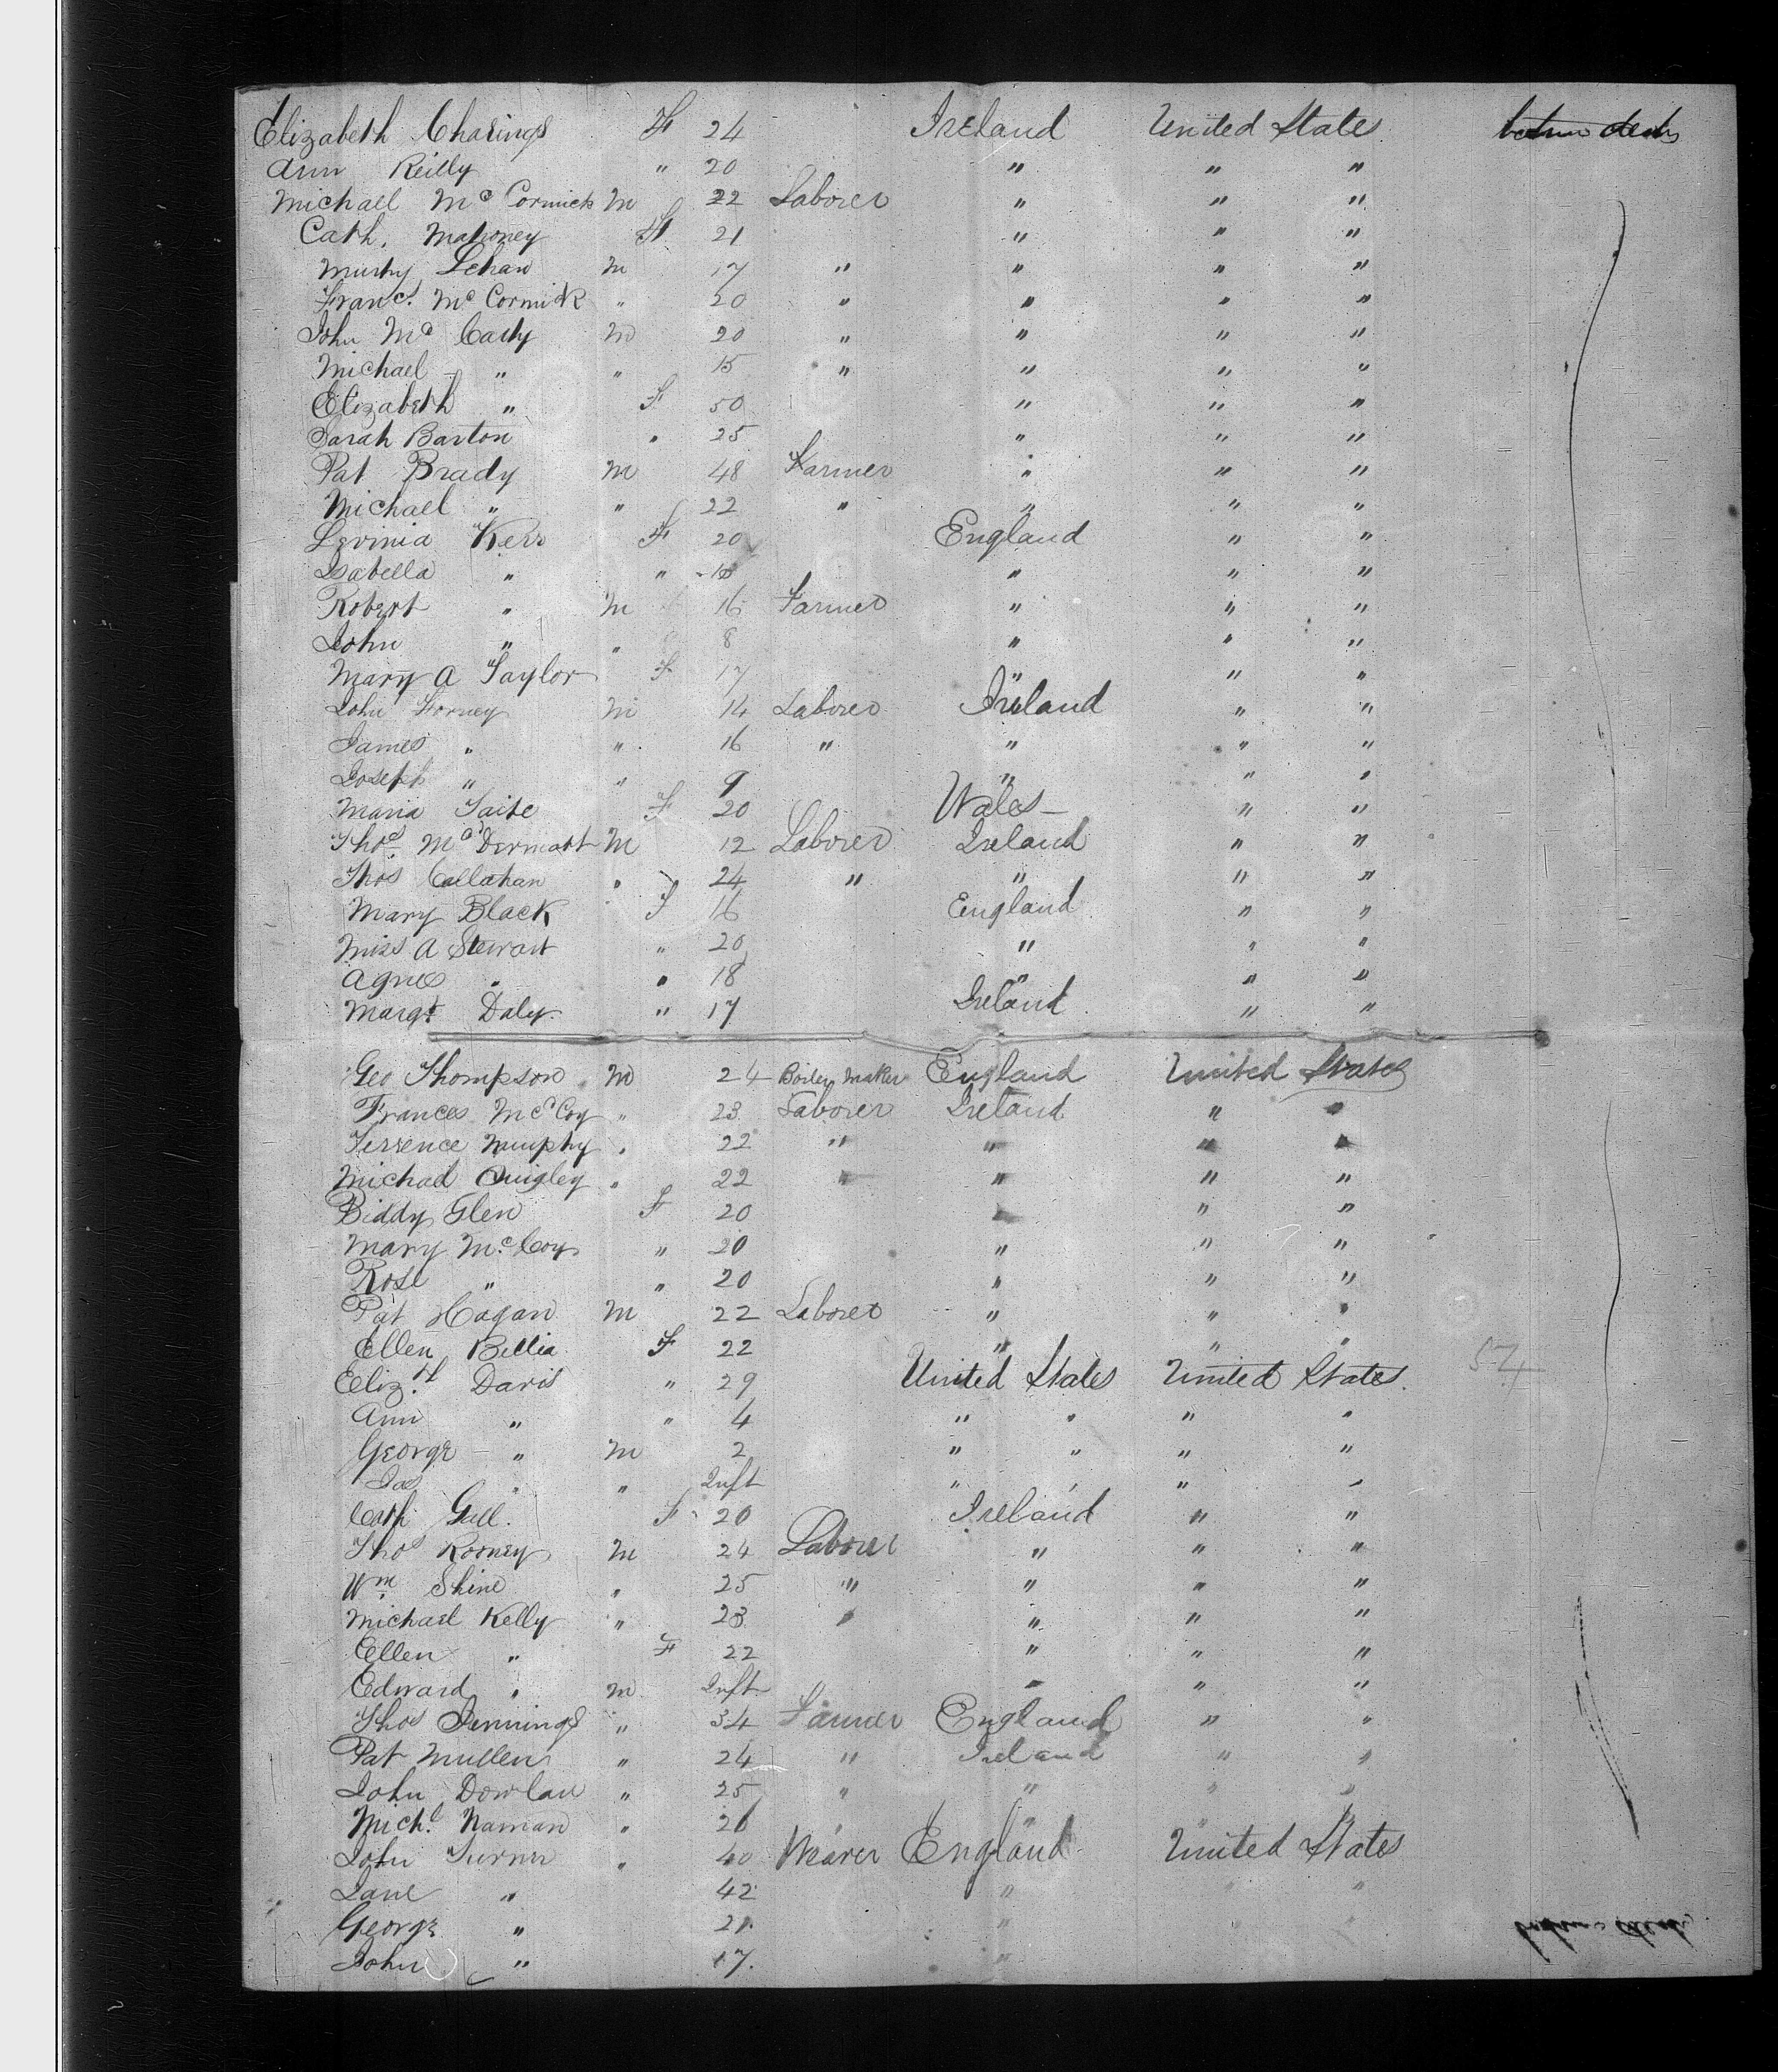 Elizabeth Charings F 24 Ireland United States between decks
Ann Reilly " 20 " " "
Michael McCormick M 22 Laborer " " "
Cath. Mahoney F 21 " " "
Murty Lehan M 17 " " " "
Francs. McCormick " 20 " " " "
John McCarty M 20 " " " "
Michael " " 15 " " " "
Elizabeth " F 50 " " "
Sarah Barton " 25 " " "
Pat Brady M 48 Farmer " " "
Michael " " 22 " " " "
Levinia Kerr F 20 England " "
Isabella " " 18 " " "
Robert " M 16 Farmer " " "
John " " 8 " " "
Mary A Taylor F 17 " " "
John Forney M 14 Laborer Ireland " "
James " " 16 " " " "
Joseph " " 9 " " "
Maria Taite F 20 Wales " "
Thos. McDermott M 12 Laborer Ireland " "
Thos Callahan " 24 " " " "
Mary Black F 16 England " "
Miss A Stewart " 20 " " "
Agnes " " 18 " " "
Margt Daly " 17 Ireland " "
Geo Thompson M 24 Boiler Maker England United States
Frances McCoy " 23 Laborer Ireland " "
Terrence Murphy " 22 " " " "
Michael Quigley " 22 " " " "
Biddy Glen F 20 " " "
Mary McCoy " 20 " " "
Rose " " 20 " " "
Pat Hagan M 22 Laborer " " "
Ellen Bellia F 22 " " "
Eliz.th Davis " 29 United States United States
Ann " " 4 " " " "
George " M 2 " " " "
Jas " " Inft " " " "
Cath Gill F 20 Ireland " "
Thos Rooney M 24 Laborer " " "
Wm Shine " 25 " " " "
Michael Kelly " 23 " " " "
Ellen " F 22 " " "
Edward " M Inft " " "
Thos Jennings " 34 Farmer England " "
Pat Mullen " 24 " Ireland " "
John Dowlan " 25 " " " "
Michl. Naman " 26 " " " "
John Turner " 40 Weaver England United States
Jane " 42 " " "
George " 21 "
John " 17 "